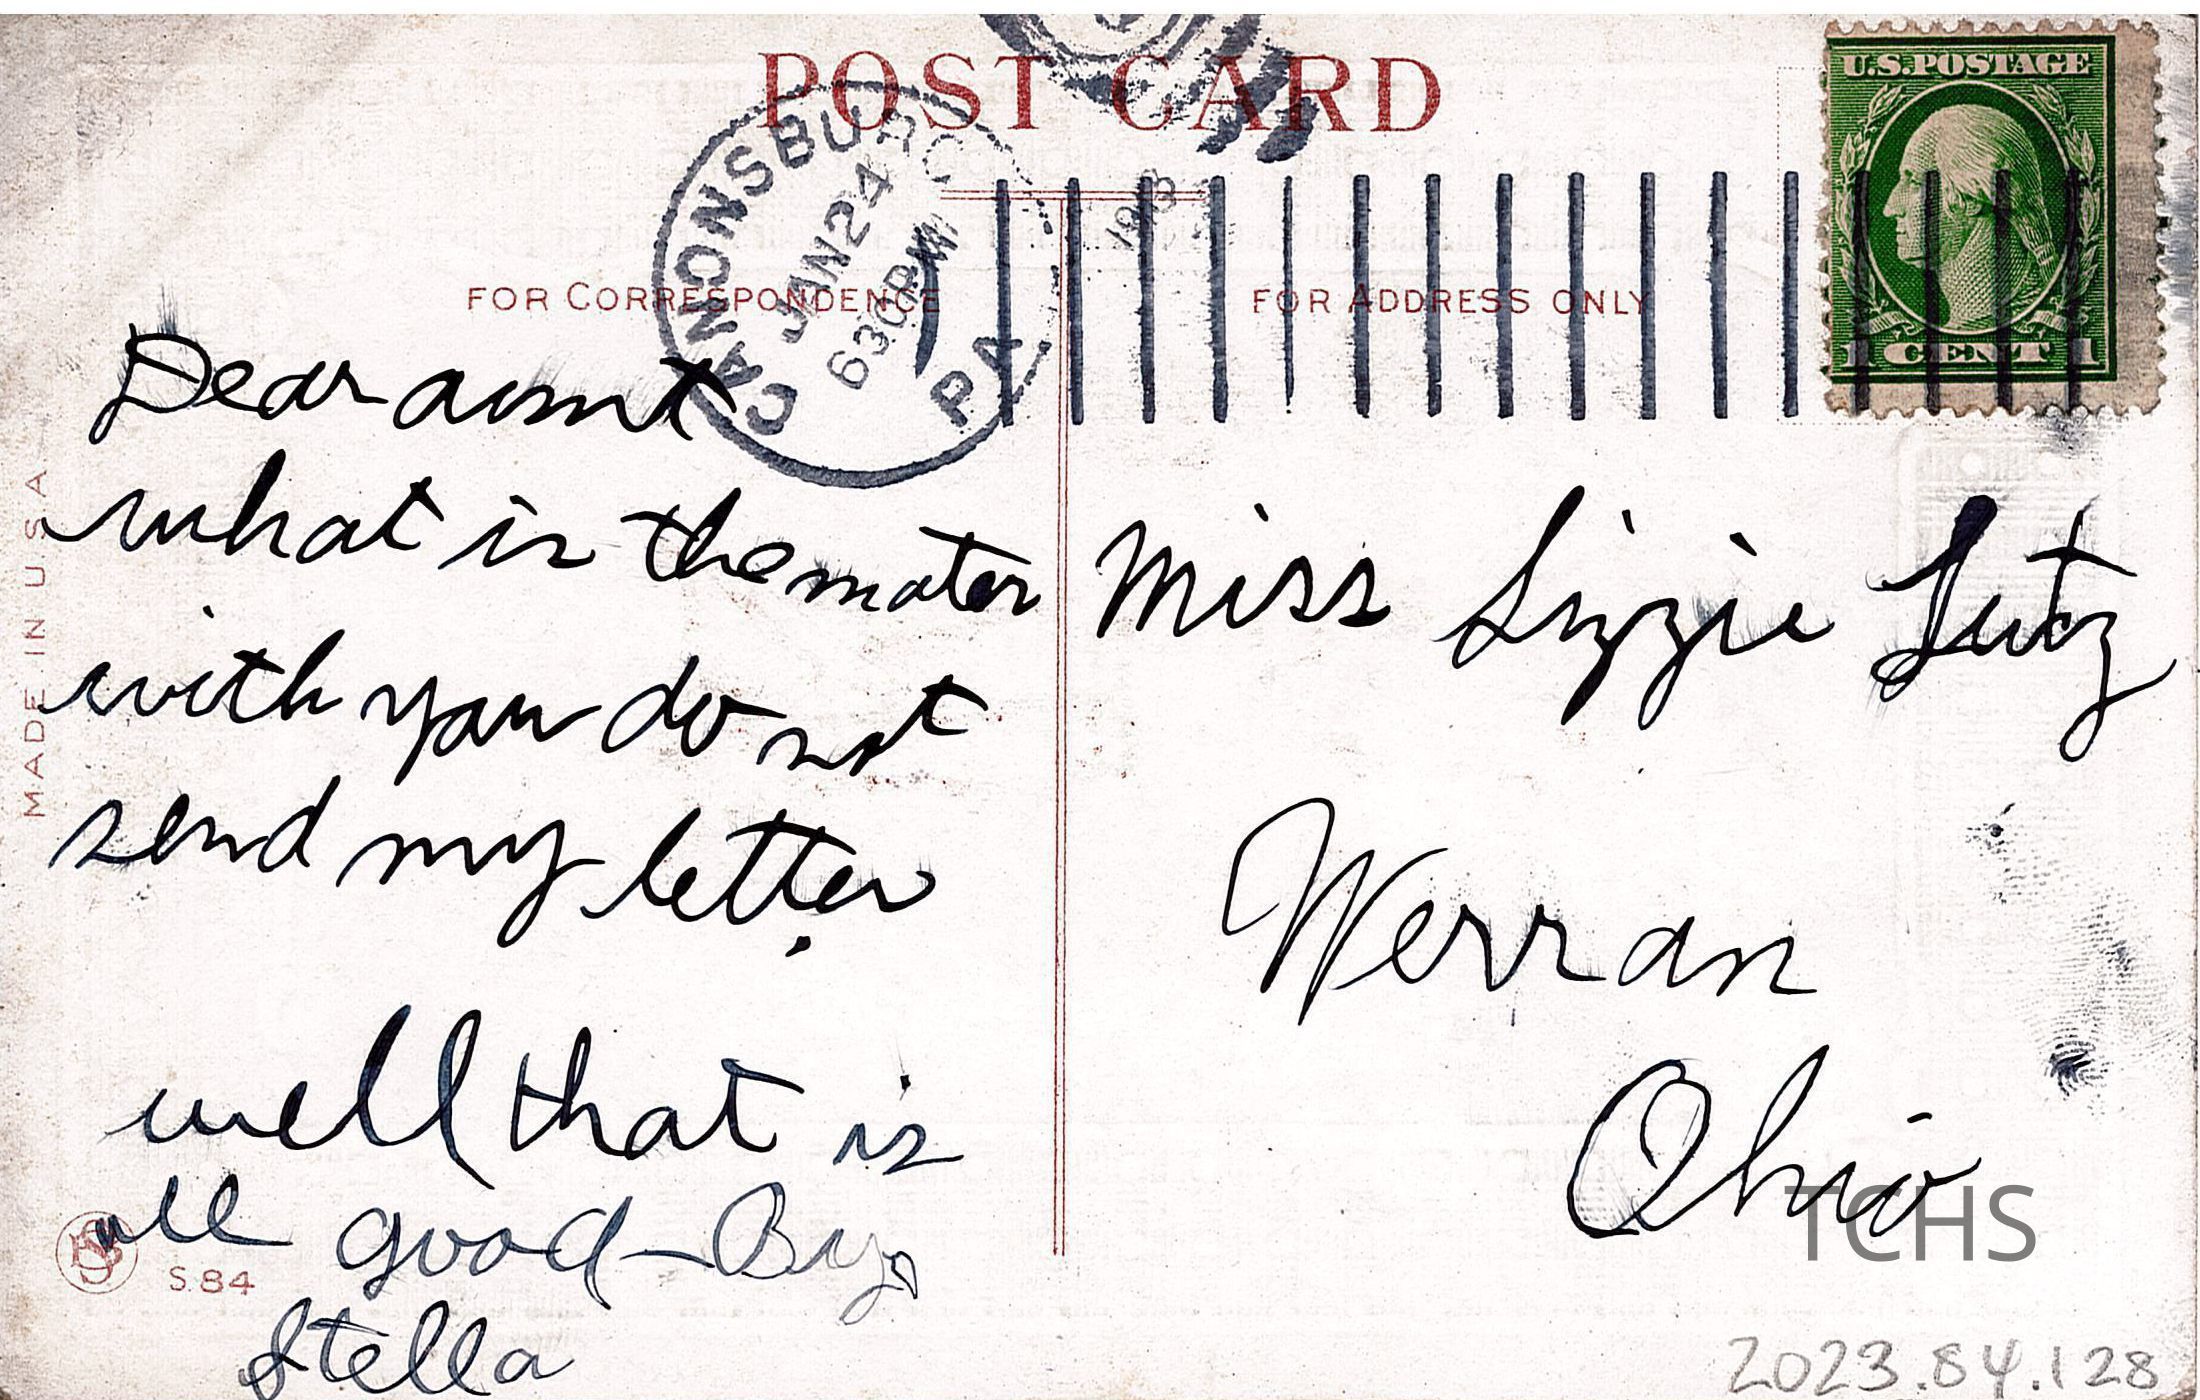 POST CARD
CANONSBURG
PA
JAN 24
630 PM
1913
U.S. POSTAGE
1 CENT 1
FOR CORRESPONDENCE
FOR ADDRESS ONLY
MADE IN U.S.A
Dear aunt
what is the mater
with you do not
send my letter
.
well that is
all good-By
Stella
Miss Lizzie Lutz
Werran
Ohio
S.84
TCHS
2023.84.128